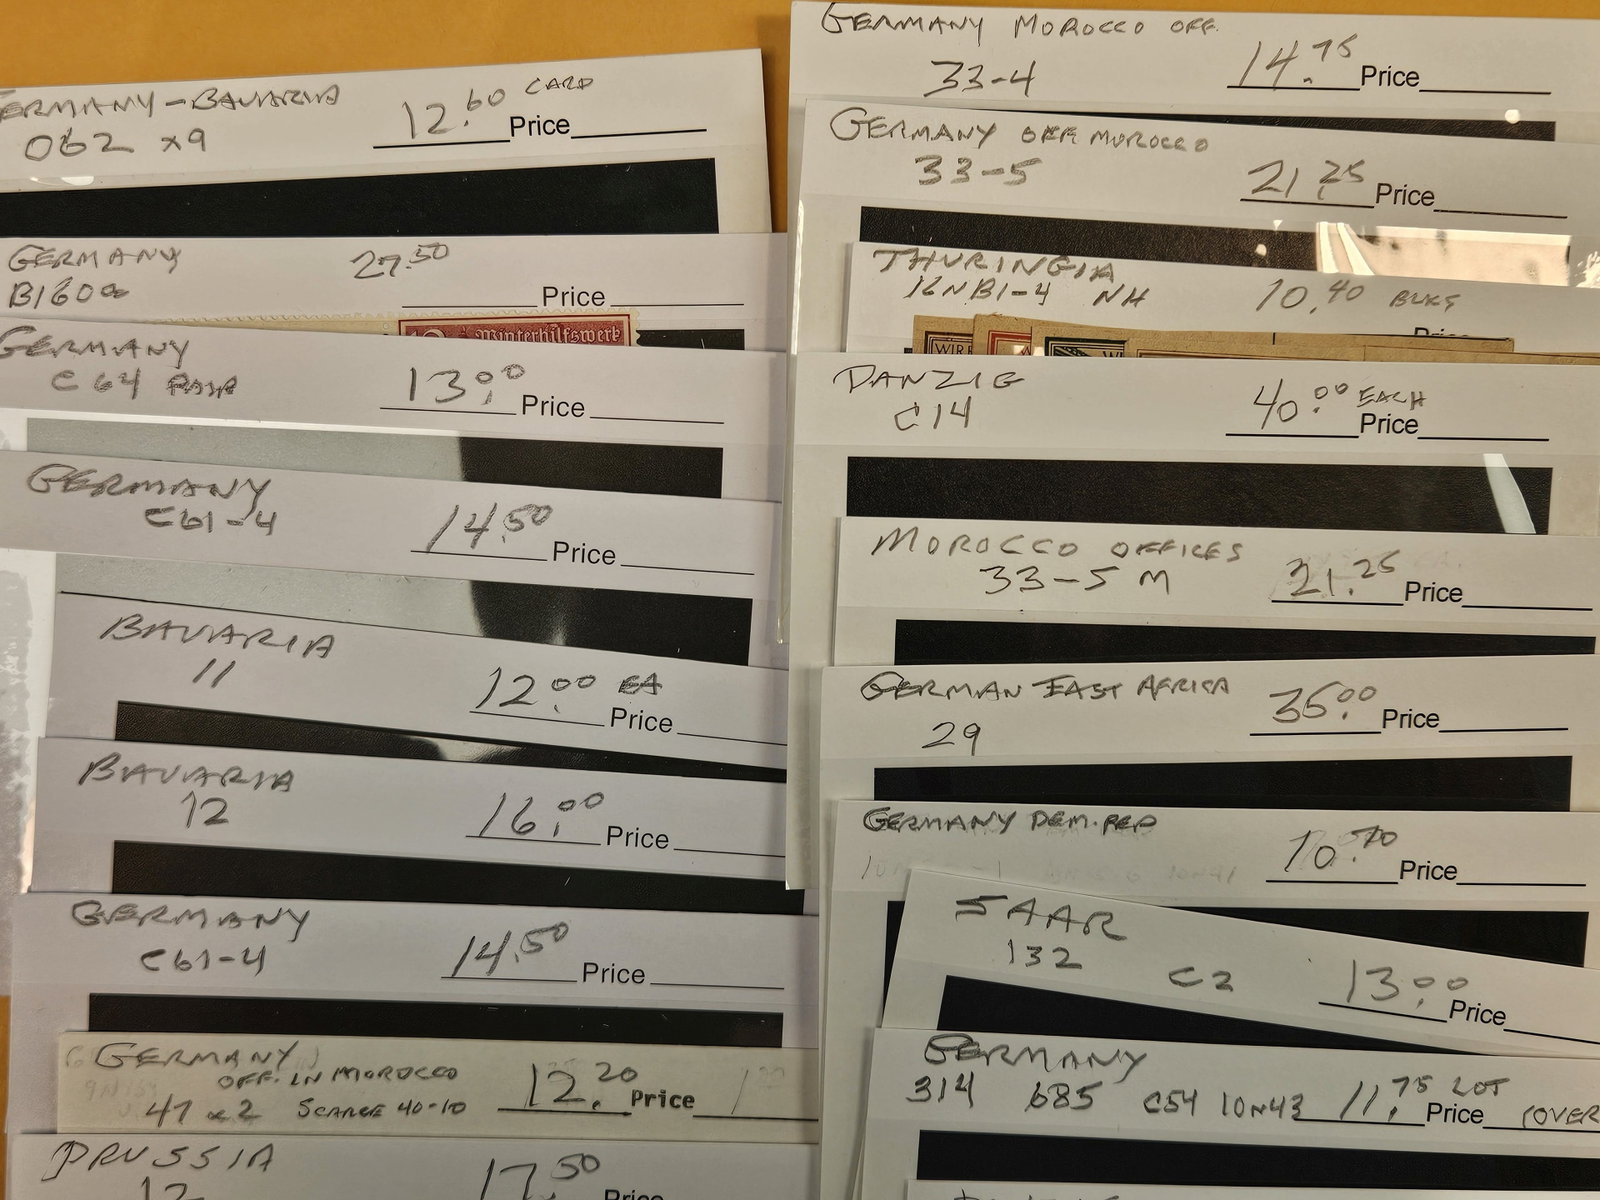 GERMANY-BAVARIA
O62 x9
12.60 CARD
Price
GERMANY
B160a
27.50
Price
Winterhilfswerk
GERMANY
C64 PAIR
13.00
Price
GERMANY
C61-4
14.50
Price
BAVARIA
11
12.00 EA
Price
BAVARIA
12
16.00
Price
GERMANY
C61-4
14.50
Price
GERMANY
OFF. IN MOROCCO
47 x2 SCARCE 40-10
12.20
Price
PRUSSIA
12
17.50
Price
GERMANY MOROCCO OFF.
33-4
14.75
Price
GERMANY OFF. MOROCCO
33-5
21.25
Price
THURINGIA
16NB1-4 NH
10.40 BLKS
Price
WIR
DANZIG
C14
40.00 EACH
Price
MOROCCO OFFICES
33-5 M
21.25
Price
GERMAN EAST AFRICA
29
35.00
Price
GERMANY DEM. REP
10.70
Price
SAAR
132 C2
13.00
Price
GERMANY
314 685 C54 10N43
11.75 LOT
Price
(OVER